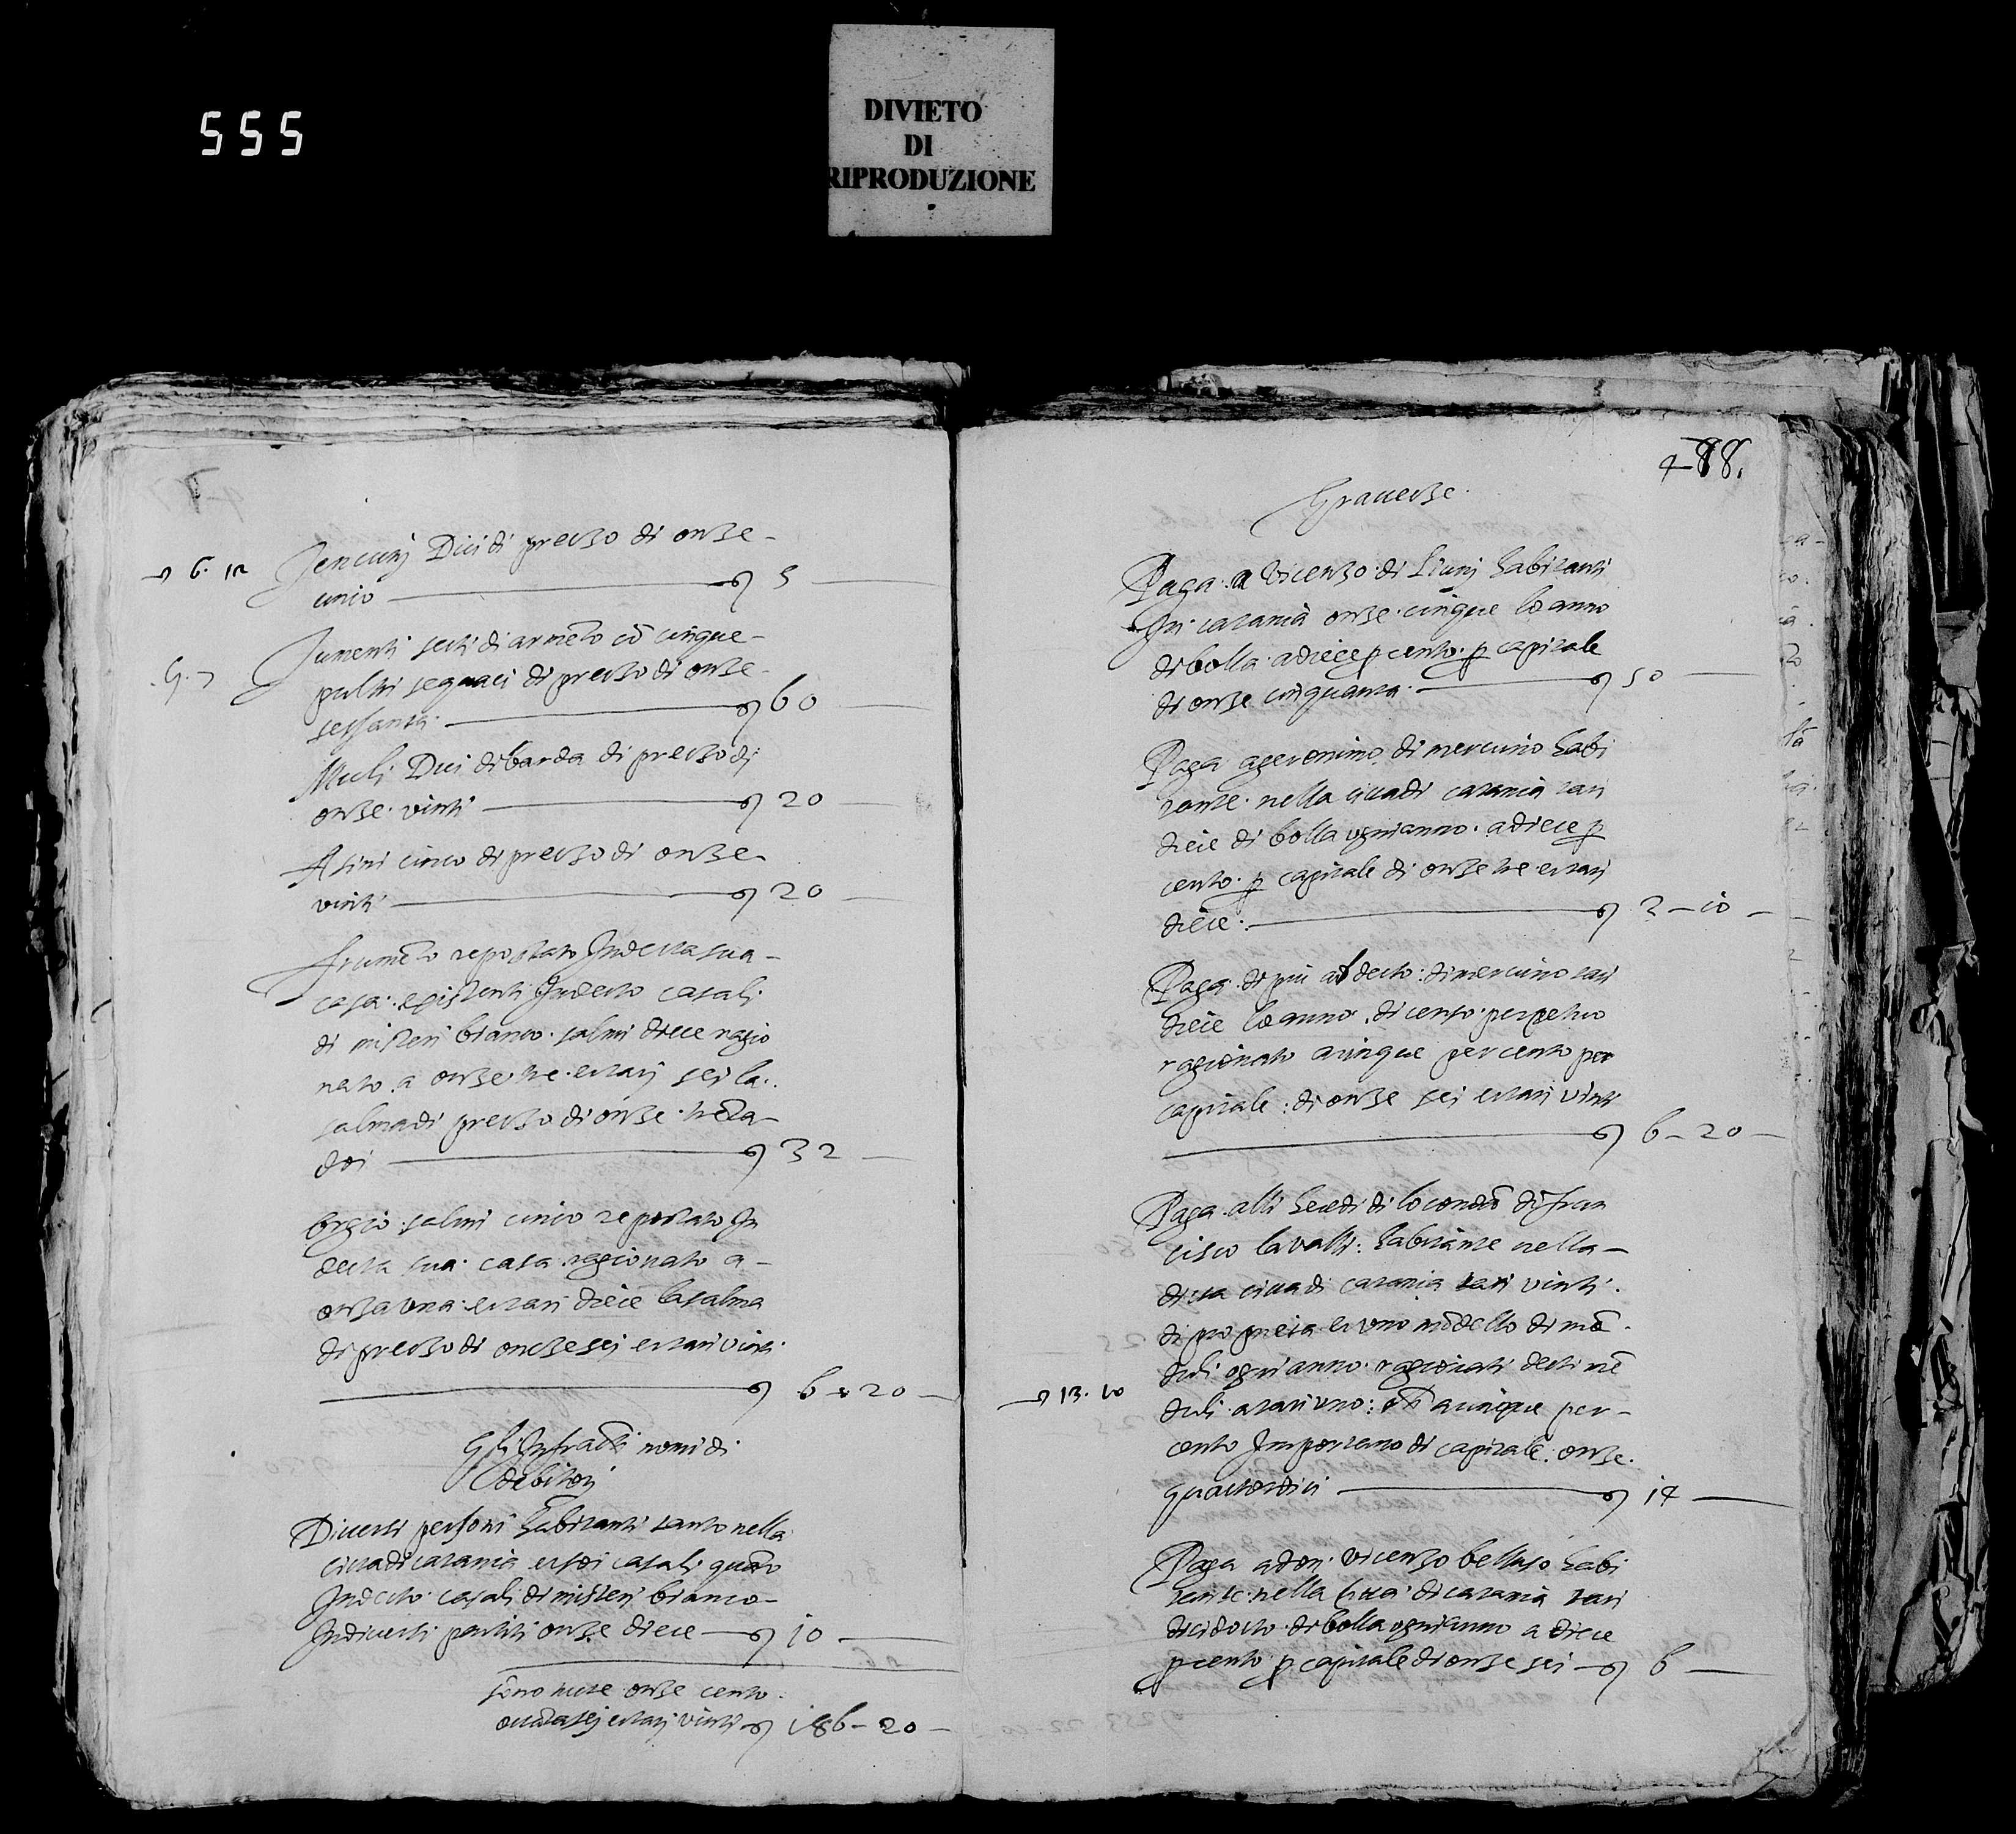 555
DIVIETO
DI
RIPRODUZIONE
6. 12
Jencuni Dui di prezzo di onze
cinco 5
Jumenti setti di armēto cō cinque
pultri seguaci di prezzo di onze
sessanta 60
Muli Dui di barda di prezzo di
onze vinti 20
Asini cinco di prezzo di onze
vinti 20
frumēto repostato In detta sua
casa existenti In detto casali
di misteri bianco salmi diece ragio
nato a onze tre et tarì sei la
salma di prezzo di onze trēta
doi 32
orgio salmi cinco repostato In
detta sua casa ragionato a
onza una et tarì diece la salma
di prezzo di onze sej et tarì vinti
6 - 20
Gli Infratti nomi di
debitori
Diversi persone habitanti tanto nella
citta di catania et soi casali quāto
In detto casali di misteri bianco
In diversi partiti onze diece 10
sōno tutte onze cento
ottāta sej et tarì vinti 186 - 20
488.
Gravezze
Paga a Vicenzo di habitanti
In catania onze cinque lo anno
di bolla a diece p cento p capitale
di onze cinquanta 50
Paga a geronimo di mercurio habi
tante nella citta di catania tarì
diece di bolla ogni anno a diece p
cento p capitale di onze tre et tarì
diece 3 - 10
Paga di più al detto di mercurio tarì
diece lo anno di censo perpetuo
ragionato a cinque per cento per
capitale di onze sei et tarì vinti
6 - 20
Paga alli heredi di lo condā di fran
cisco la valli habitante nella
ditta citta di catania tarì vinti
di proprietà et uno mōdello di mē
duli ogni anno ragionati detti mē
13. 10
duli a tarì uno a cinque per
cento Importano di capitale onze
quattordici 14
Paga a don Vicenzo bellaso habi
tante nella citta di catania tarì
dicidotto di bolla ogni anno a diece
p cento p capitale di onze sei 6